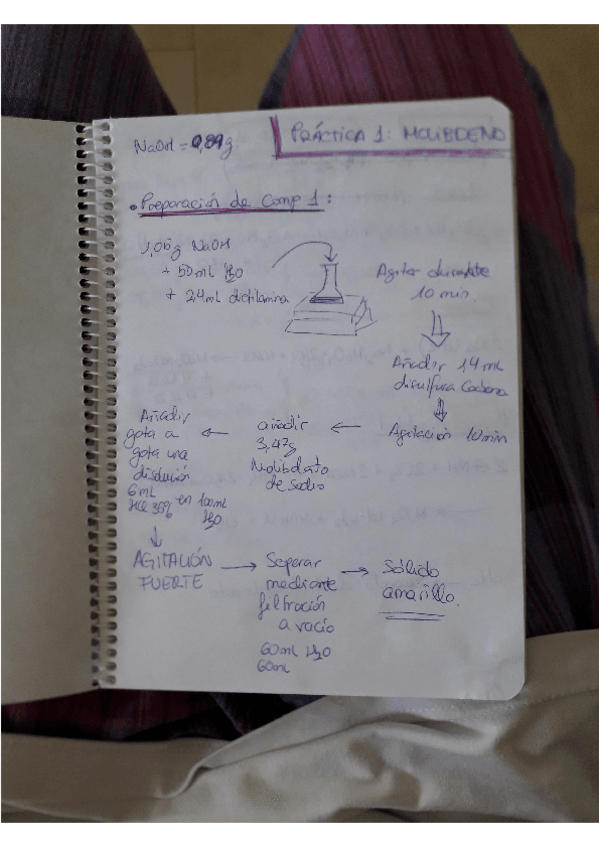 NaOH = 0,89g
PRÁCTICA 1: MOLIBDENO
• Preparación de Comp 1:
1,06g NaOH
+ 50ml H2O
+ 2,4ml dietilamina
Agitar durante
10 min.
Añadir 1,4 mL
disulfuro Carbono
Agitación 10min
añadir
3,47g
Molibdato
de sodio
Añadir
gota a
gota una
disolución
6mL
HCl 35% en 100ml
H2O
AGITACIÓN
FUERTE
Separar
mediante
filtración
a vacío
60ml H2O
60ml
Sólido
amarillo.